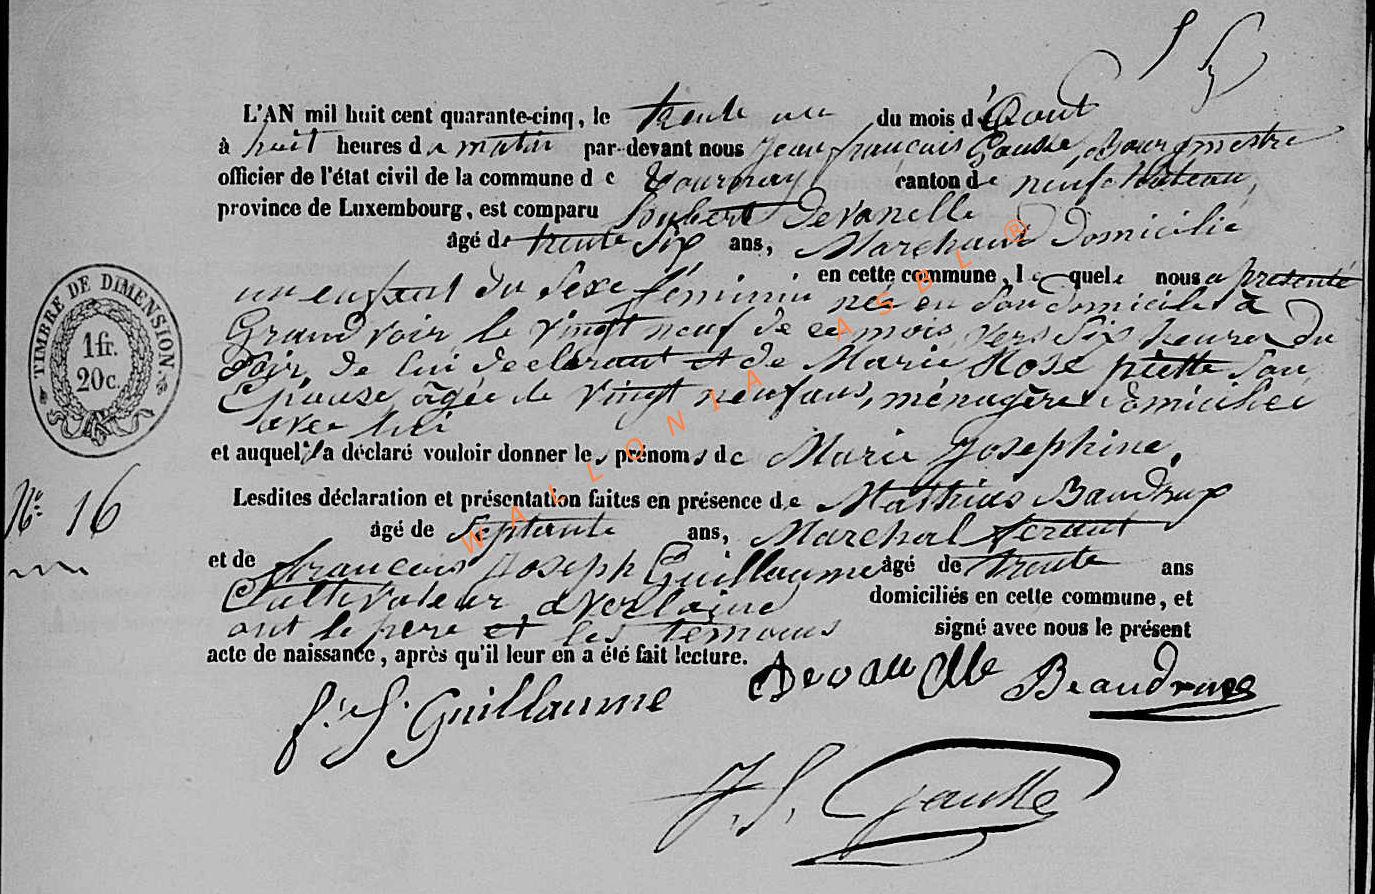 L'AN mil huit cent quarante-cinq, le trente un du mois d'Aout
à huit heures du matin par-devant nous Jean françois Gausse, Bourgmestre
officier de l'état civil de la commune de Tournay canton de neufchateau,
province de Luxembourg, est comparu Devanelle
âgé de trente six ans, Marchand Domicilié
en cette commune, lequel nous a presenté
un enfant du Sexe féminin née en Son domicile à
Grandvoir, le vingt neuf de ce mois, vers Six heures du
Soir, de lui declarant et de Marie Rose piette Son
Epouse, agée de vingt neuf ans, ménagère domiciliée
avec lui
et auquel il a déclaré vouloir donner les prénoms de Marie Josephine.
Lesdites déclaration et présentation faites en présence de Mathieu Baudrux
âgé de Septante ans, Marechal ferant
et de francois Joseph Guillaume âgé de trente ans
Cultivateur, a Verlaine domiciliés en cette commune, et
ont le pere et les temoins signé avec nous le présent
acte de naissance, après qu'il leur en a été fait lecture.
TIMBRE DE DIMENSION
1 fr.
20 c.
N° 16
f. J. Guillaume Devanelle Beaudrux
J. f. Gausse
WALLONIA ASBL ®